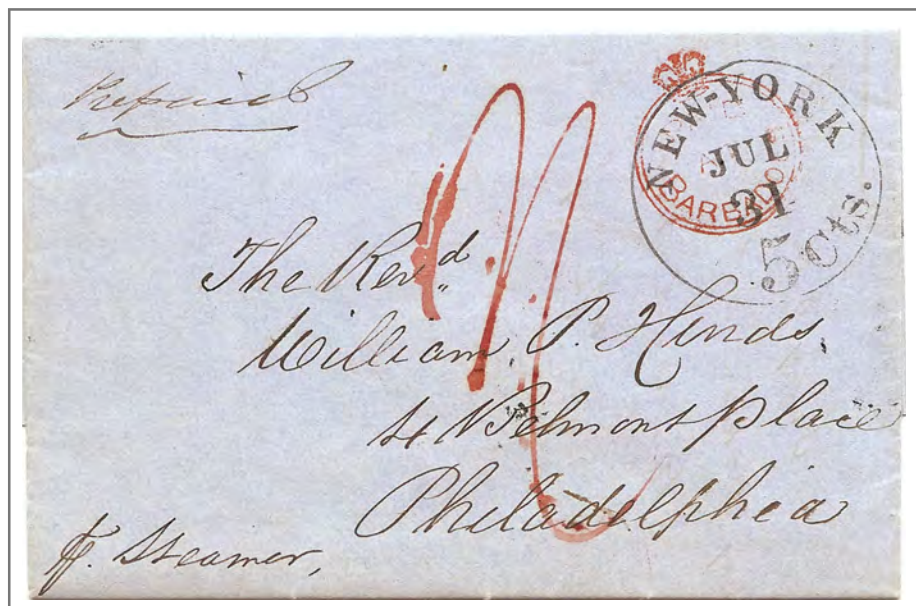 Prepaid
NEW-YORK
JUL
31
5 cts.
BARBADO
The Revd
William P. Hinds
4 Belmont Place
Philadelphia
p. Steamer,